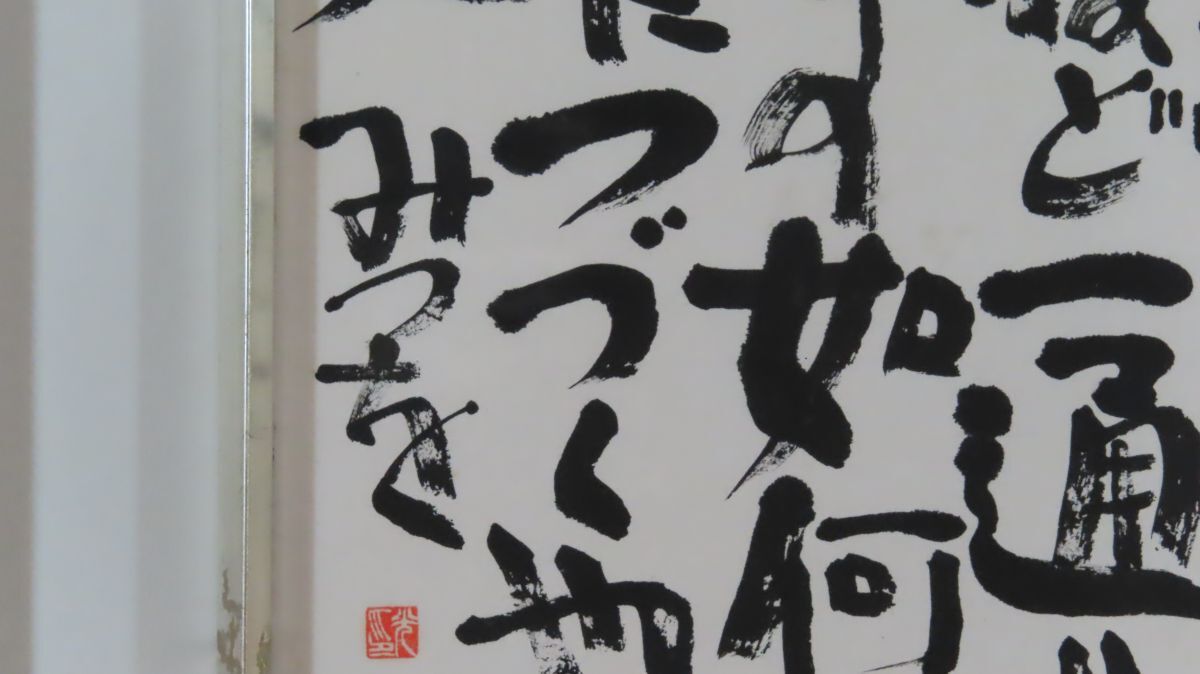 ど一通
の如何
つづくや
みつを